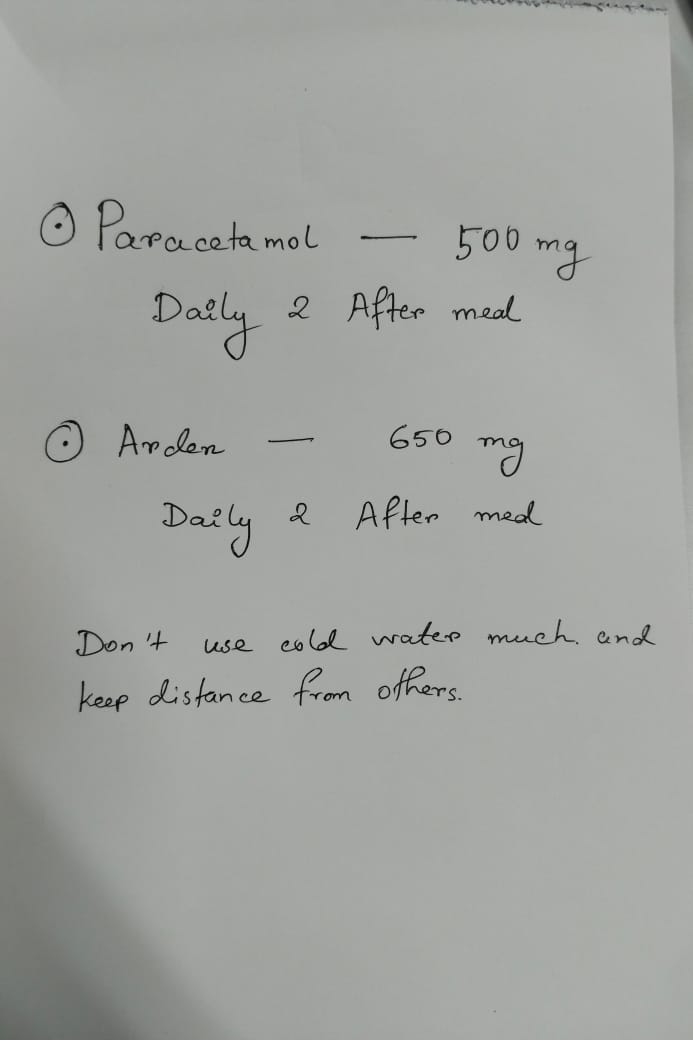 ⊙ Paracetamol — 500 mg
Daily 2 After meal
⊙ Arden — 650 mg
Daily 2 After meal
Don't use cold water much. and
keep distance from others.